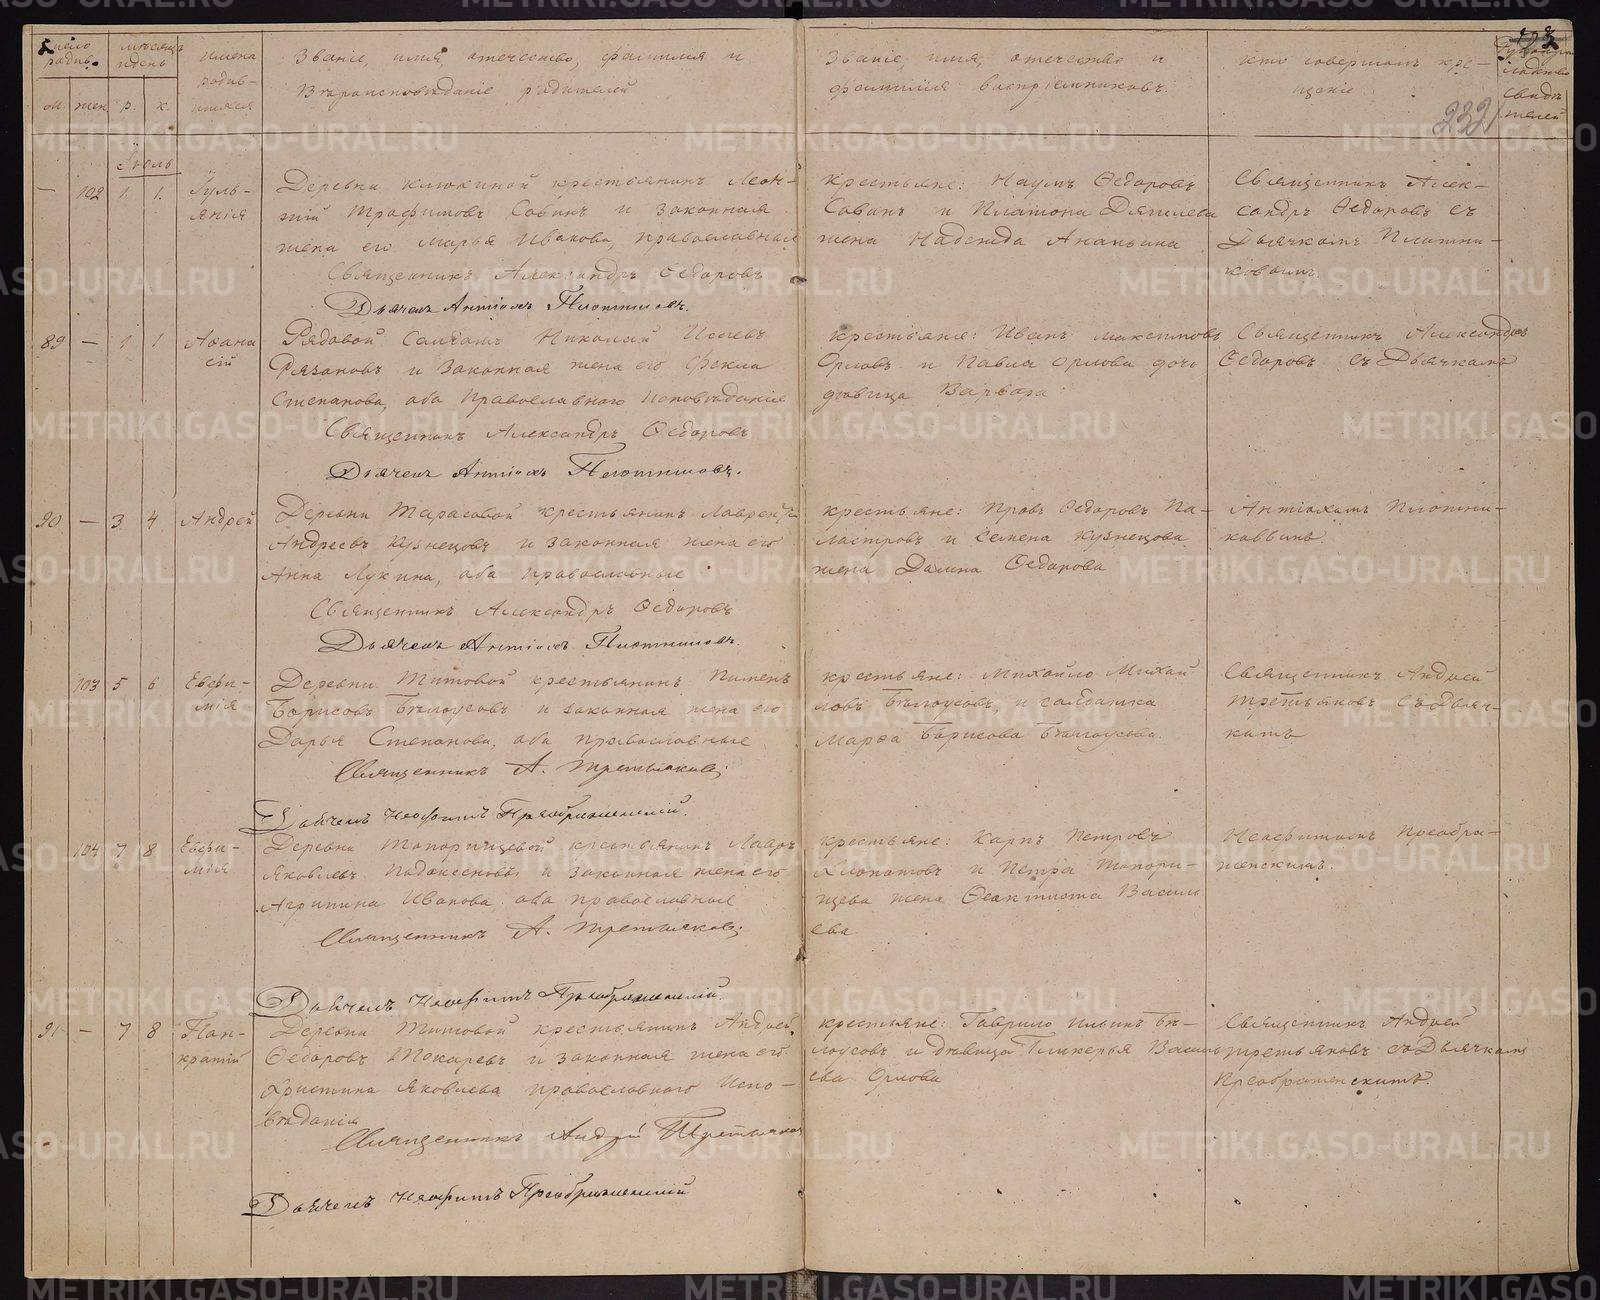 Число родив.
мѣсяцъ и день
имена родив-
шихся
Званіе, имя, отечество, фамилія и
Вѣроисповѣданіе родителей
Званіе, имя, отечество и
фамилія воспріемниковъ.
кто совершалъ кре-
щеніе
232
М. жен. р. к.
Іюль
— 102 1. 1. Іуль-
янія
Деревни Клюкиной крестьянинъ Леон-
тій Трофимовъ Савинъ и законная
жена его Марья Ивакова, православные
Священникъ Александръ Ѳедоровъ
Дьячекъ Антіохъ Плотниковъ.
крестьяне: Наумъ Ѳедоровъ
Савинъ и Платона Дягилева
жена Надежда Ананьина
Священникъ Алек-
сандръ Ѳедоровъ съ
Дьячкомъ Плотни-
ковымъ.
89 — 1 1 Аѳана
сій
Рядовой Солдатъ Николай Исаевъ
Рязановъ и Законная жена его Фекла
Степанова, оба Православнаго Исповѣданія
Священникъ Александръ Ѳедоровъ
Дьячекъ Антіохъ Плотниковъ.
крестьяне: Иванъ Максимовъ
Орловъ и Павла Орлова дочь
дѣвица Варвара
Священникъ Александръ
Ѳедоровъ съ Дьячкомъ
90 — 3 4 Андрей
Деревни Тарасовой крестьянинъ Лаврентій
Андреевъ Кузнецовъ и законная жена его
Анна Лукина, оба православные
Священникъ Александръ Ѳедоровъ
Дьячекъ Антіохъ Плотниковъ.
крестьяне: Провъ Ѳедоровъ Па-
ластровъ и Семена Кузнецова
жена Домна Ѳедорова
Антіохомъ Плотни-
ковымъ.
103 5 6 Евфи-
мія
Деревни Титовой крестьянинъ Пименъ
Борисовъ Бѣлоусовъ и законная жена его
Дарья Степанова, оба православные
Священникъ А. Третьяковъ;
Дьячекъ Неофитъ Преображенскій.
крестьяне: Михайло Михай
ловъ Бѣлоусовъ, и солдатка
Марѳа Борисова Бѣлоусова.
Священникъ Андрей
Третьяковъ съ Дьяч-
комъ
104 7 8 Евфи-
мія
Деревни Топорищевой крестьянинъ Лавръ
Яковлевъ и законная жена его
Агрипина Иванова оба православные
Священникъ А. Третьяковъ;
Дьячекъ Неофитъ Преображенскій.
крестьяне: Карпъ Петровъ
и Петра Топори-
щева жена Ѳеактиста Василь
ева
Неофитомъ Преобра-
женскимъ.
91 — 7 8 Пан-
кратій
Деревни Титовой крестьянинъ Андрей
Ѳедоровъ Токаревъ и законная жена его
Христина Яковлева православнаго Испо-
вѣданія
Священникъ Андрей Третьяковъ
Дьячекъ Неофитъ Преображенскій
крестьяне: Гаврило Ильинъ Бѣ-
лоусовъ и дѣвица Гликерья Василь
ева Орлова
Священникъ Андрей
Третьяковъ съ Дьячкомъ
Преображенскимъ.
METRIKI.GASO-URAL.RU